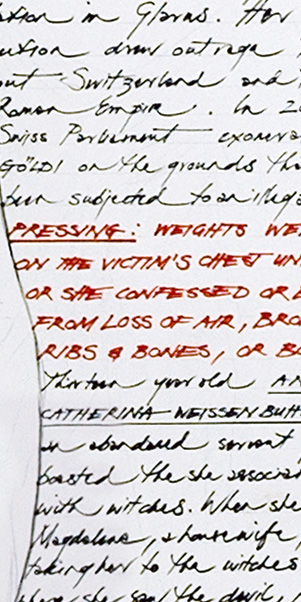 ation in Glarus. Her
ution drew outrage
out Switzerland and
Roman Empire. In 2
Swiss Parliament exonera
GÖLDI on the grounds tha
been subjected to an illega
PRESSING: WEIGHTS WE
ON THE VICTIM'S CHEST UN
OR SHE CONFESSED OR
FROM LOSS OF AIR, BRO
RIBS & BONES, OR B
Thirteen year old AN
CATHERINA WEISSENBUH
an abandoned servant
boasted the she associa
with witches. When she
Magdalena, a housewife,
taking her to the witches
where she saw the devil,